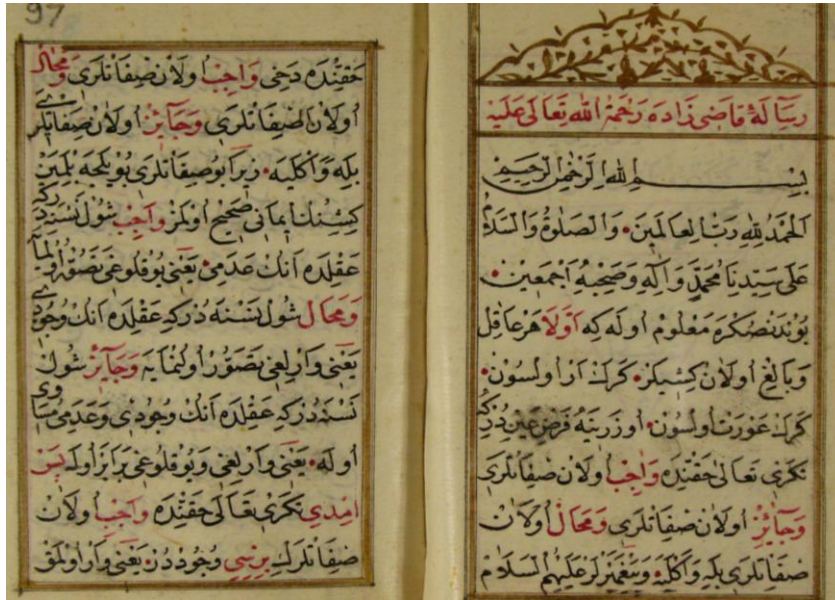 رسالۀ قاضى زاده رحمة الله تعالى عليه
بسم الله الرحمن الرحيم
الحمد لله رب العالمين والصلوة والسلام
على سيدنا محمد وآله وصحبه اجمعين
بوندنصكره معلوم اوله كه اولا هر عاقل
وبالغ اولان كشيلر كرك ار اولسون
كرك عورت اولسون اوزرينه فرض عيندركه
تكرى تعالى حقنده واجب اولان صفاتلرى
وجائز اولان صفاتلرى ومحال اولان
صفاتلرى بيله واكليه وپيغمبرلر عليهم السلام
97
حقنده دخى واجب اولان صفاتلرى ومحال
اولان الصفاتلرى وجائز اولان صفاتلرى
بيله واكليه زيرا بو صفاتلرى بويلجه بلمين
كسنك ايمانى صحيح اولمز واجب شول نسنه دركه
عقلده انك عدمى يعنى يوقلوغى تصور اولنمايه
ومحال شول نسنه دركه عقلده انك وجودى
يعنى وارلغى تصور اولنمايه وجائز شول
نسنه دركه عقلده انك وجودى وعدمى مساوى
اوله يعنى وارلغى ويوقلوغى برابر اوله پس
امدى تكرى تعالى حقنده واجب اولان
صفاتلرك برنسى وجوددر يعنى وار اولمق